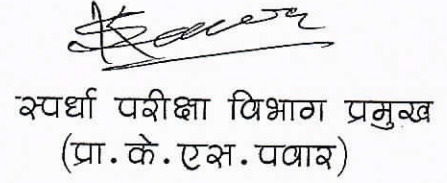 स्पर्धा परीक्षा विभाग प्रमुख
(प्रा. के. एस. पवार)